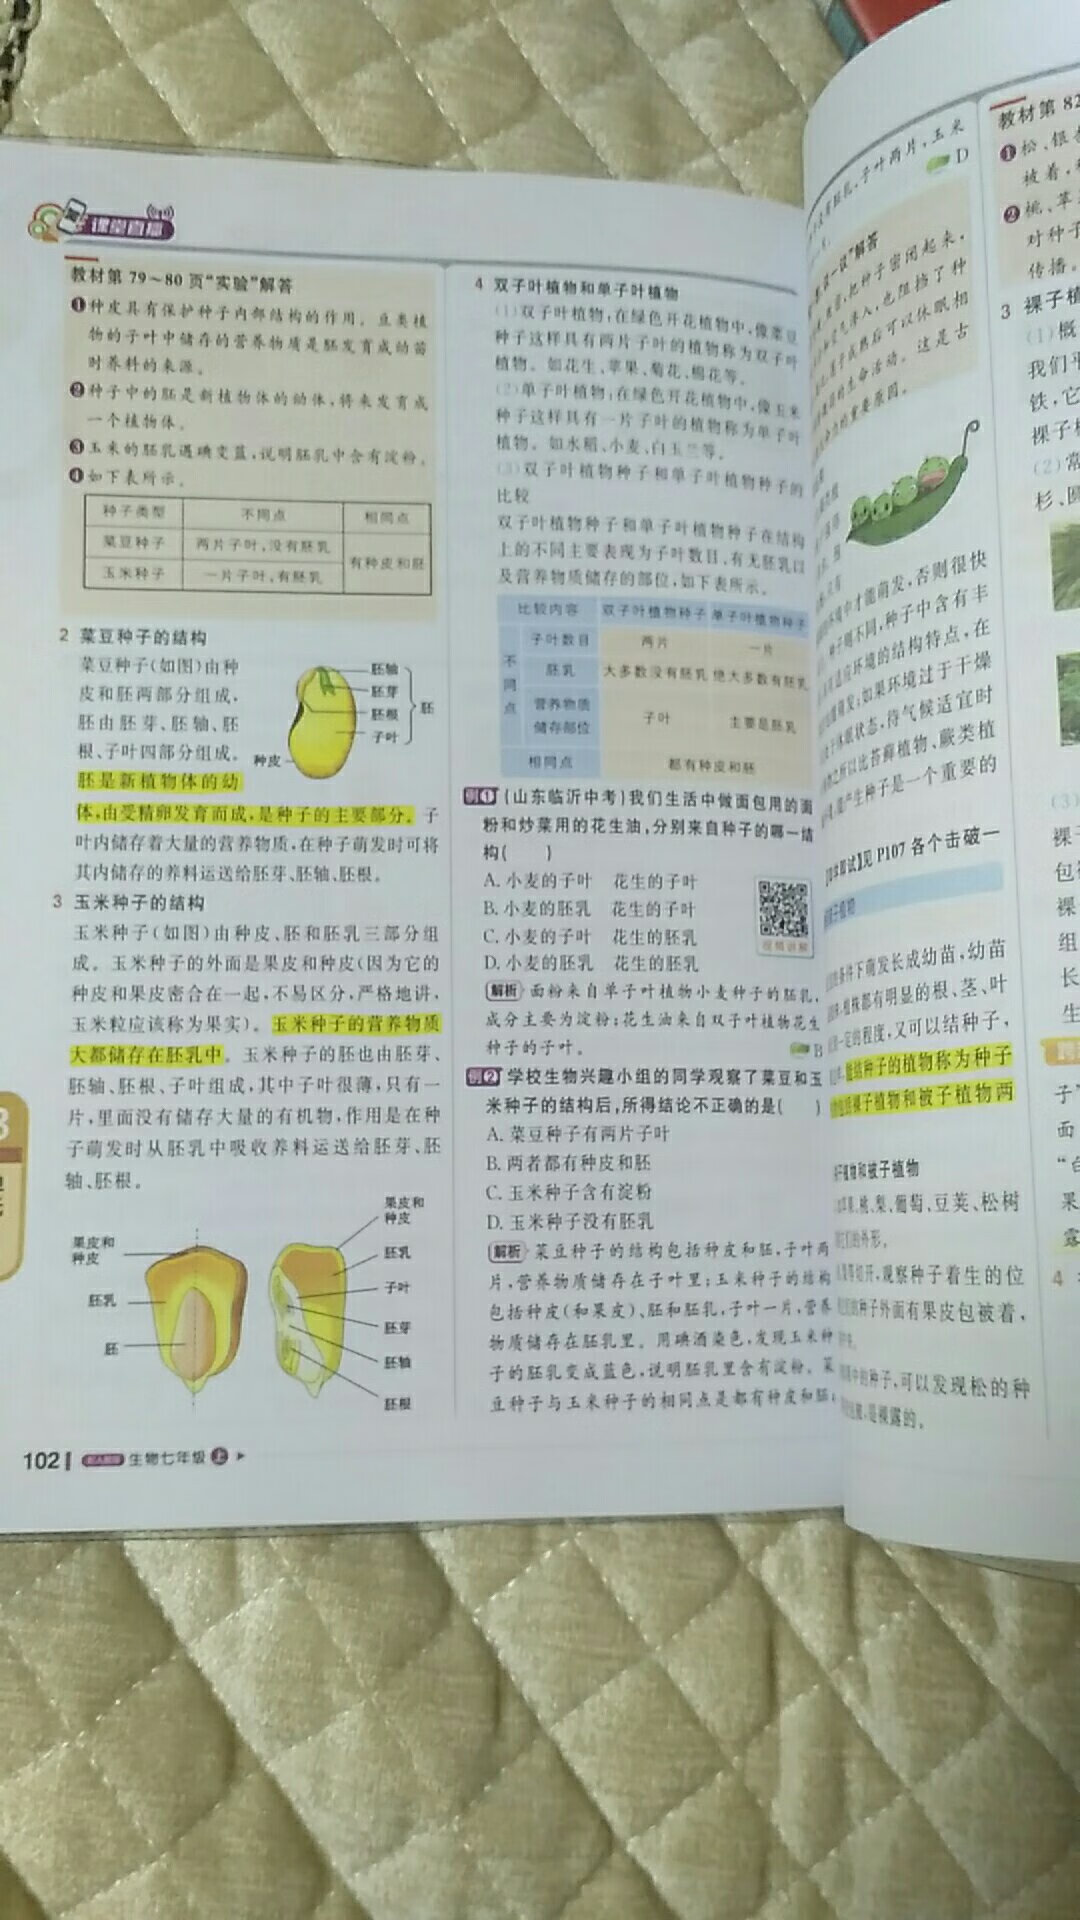 课堂直播
教材第79～80页“实验”解答
❶种皮具有保护种子内部结构的作用。豆类植
物的子叶中储存的营养物质是胚发育成幼苗
时养料的来源。
❷种子中的胚是新植物体的幼体,将来发育成
一个植物体。
❸玉米的胚乳遇碘变蓝,说明胚乳中含有淀粉。
❹如下表所示。
种子类型 不同点 相同点
菜豆种子 两片子叶,没有胚乳
有种皮和胚
玉米种子 一片子叶,有胚乳
2 菜豆种子的结构
菜豆种子(如图)由种
皮和胚两部分组成,
胚由胚芽、胚轴、胚
根、子叶四部分组成。
胚是新植物体的幼
体,由受精卵发育而成,是种子的主要部分。子
叶内储存着大量的营养物质,在种子萌发时可将
其内储存的养料运送给胚芽、胚轴、胚根。
胚轴
胚芽
胚根
子叶
胚
种皮
3 玉米种子的结构
玉米种子(如图)由种皮、胚和胚乳三部分组
成。玉米种子的外面是果皮和种皮(因为它的
种皮和果皮密合在一起,不易区分,严格地讲,
玉米粒应该称为果实)。玉米种子的营养物质
大都储存在胚乳中。玉米种子的胚也由胚芽、
胚轴、胚根、子叶组成,其中子叶很薄,只有一
片,里面没有储存大量的有机物,作用是在种
子萌发时从胚乳中吸收养料运送给胚芽、胚
轴、胚根。
果皮和
种皮
胚乳
胚
果皮和
种皮
胚乳
子叶
胚芽
胚轴
胚根
102 生物七年级 上
4 双子叶植物和单子叶植物
(1)双子叶植物:在绿色开花植物中,像菜豆
种子这样具有两片子叶的植物称为双子叶
植物。如花生、苹果、菊花、棉花等。
(2)单子叶植物:在绿色开花植物中,像玉米
种子这样具有一片子叶的植物称为单子叶
植物。如水稻、小麦、白玉兰等。
(3)双子叶植物种子和单子叶植物种子的
比较
双子叶植物种子和单子叶植物种子在结构
上的不同主要表现为子叶数目、有无胚乳以
及营养物质储存的部位,如下表所示。
比较内容 双子叶植物种子 单子叶植物种子
不同点 子叶数目 两片 一片
胚乳 大多数没有胚乳 绝大多数有胚乳
营养物质
储存部位 子叶 主要是胚乳
相同点 都有种皮和胚
例1 (山东临沂中考)我们生活中做面包用的面
粉和炒菜用的花生油,分别来自种子的哪一结
构( )
A. 小麦的子叶 花生的子叶
B. 小麦的胚乳 花生的子叶
C. 小麦的子叶 花生的胚乳
D. 小麦的胚乳 花生的胚乳
视频讲解
解析 面粉来自单子叶植物小麦种子的胚乳,
成分主要为淀粉;花生油来自双子叶植物花生
种子的子叶。
B
例2 学校生物兴趣小组的同学观察了菜豆和玉
米种子的结构后,所得结论不正确的是( )
A. 菜豆种子有两片子叶
B. 两者都有种皮和胚
C. 玉米种子含有淀粉
D. 玉米种子没有胚乳
解析 菜豆种子的结构包括种皮和胚,子叶两
片,营养物质储存在子叶里;玉米种子的结构
包括种皮(和果皮)、胚和胚乳,子叶一片,营养
物质储存在胚乳里。用碘酒染色,发现玉米种
子的胚乳变成蓝色,说明胚乳里含有淀粉。菜
豆种子与玉米种子的相同点是都有种皮和胚;
没有胚乳,子叶两片,玉米
D
议一议”解答
把种子密闭起来,
也阻挡了种
成熟后可以休眠相
生命活动。这是古
重要原因。
环境中才能萌发,否则很快
种子则不同,种子中含有丰
适应环境的结构特点,在
萌发;如果环境过于干燥
休眠状态,待气候适宜时
以比苔藓植物、蕨类植
产生种子是一个重要的
即试】见P107各个击破一
条件下萌发长成幼苗,幼苗
植株都有明显的根、茎、叶
一定的程度,又可以结种子,
能结种子的植物称为种子
裸子植物和被子植物两
植物和被子植物
桃、梨、葡萄、豆荚、松树
的外形。
切开,观察种子着生的位
种子外面有果皮包被着,
中的种子,可以发现松的种
是裸露的。
教材第82
❶松、银
被着,
❷桃、苹
对种子
传播。
3 裸子植
(1)概
我们平
铁,它
裸子植
(2)常
杉、圆
(3)
裸子
包
裸
组
长
生
子
面
果
露
4